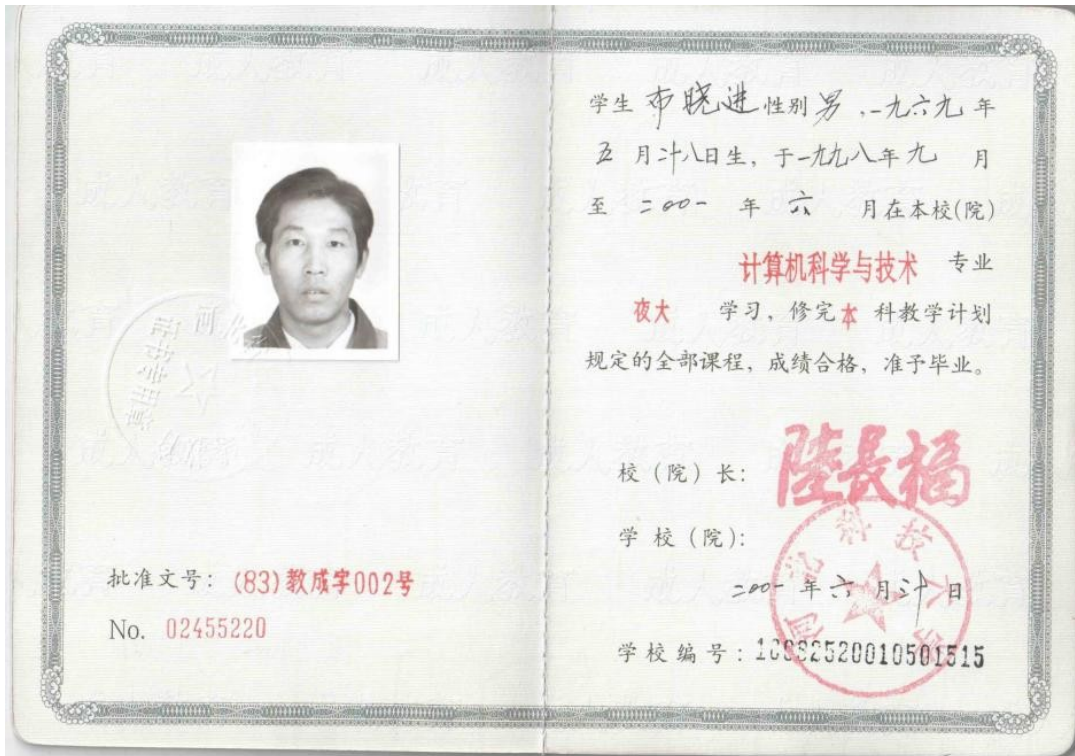 批准文号：(83)教成字002号
No. 02455220
学生 布晓进 性别 男 ,一九六九年
五 月廿八日生，于一九九八年九 月
至 二00一 年 六 月在本校(院)
计算机科学与技术 专业
夜大 学习，修完本 科教学计划
规定的全部课程，成绩合格，准予毕业。
校（院）长：陸長福
学校（院）：
河北科技大学
二00一年六月三十日
学校编号：
证书专用章
成人教育